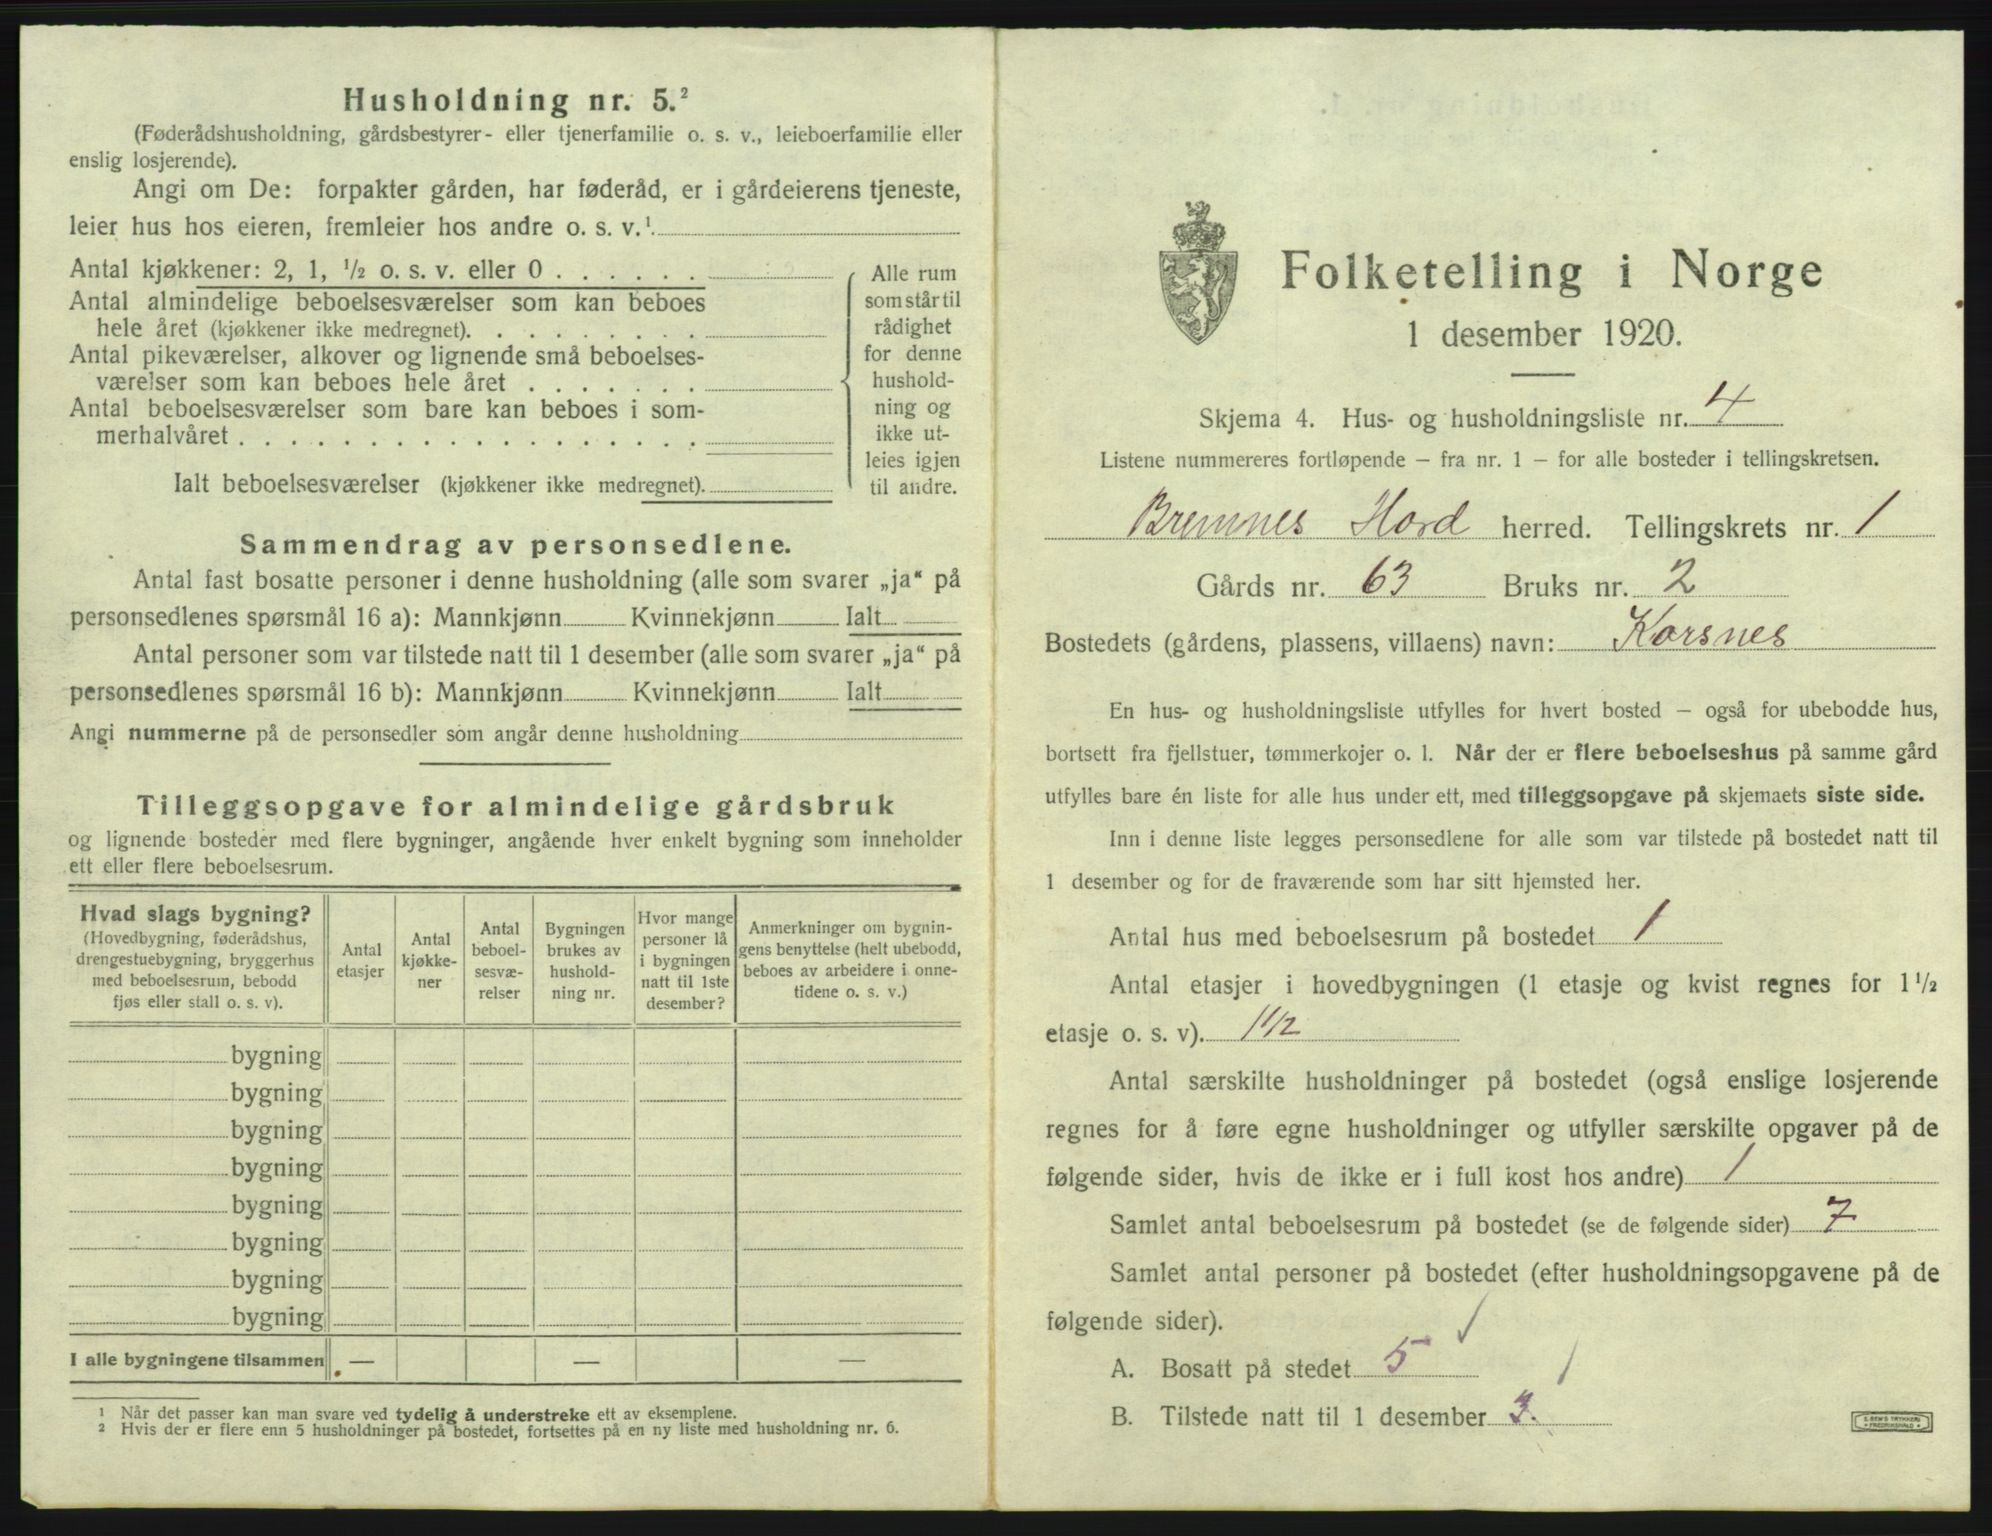 Husholdning nr. 5.²
(Føderådshusholdning, gårdsbestyrer- eller tjenerfamilie o. s. v., leieboerfamilie eller
enslig losjerende).
Angi om De: forpakter gården, har føderåd, er i gårdeierens tjeneste,
leier hus hos eieren, fremleier hos andre o. s. v.¹
Antal kjøkkener: 2, 1, ½ o. s. v. eller 0 . . . . . .
Antal almindelige beboelsesværelser som kan beboes
hele året (kjøkkener ikke medregnet). . . . . . . . .
Antal pikeværelser, alkover og lignende små beboelses-
værelser som kan beboes hele året . . . . . . .
Antal beboelsesværelser som bare kan beboes i som-
merhalvåret . . . . . . . . . . . . . . . . . .
Ialt beboelsesværelser (kjøkkener ikke medregnet).
Alle rum
som står til
rådighet
for denne
hushold-
ning og
ikke ut-
leies igjen
til andre.
Sammendrag av personsedlene.
Antal fast bosatte personer i denne husholdning (alle som svarer „ja“ på
personsedlenes spørsmål 16 a): Mannkjønn Kvinnekjønn Ialt
Antal personer som var tilstede natt til 1 desember (alle som svarer „ja“ på
personsedlenes spørsmål 16 b): Mannkjønn Kvinnekjønn Ialt
Angi nummerne på de personsedler som angår denne husholdning
Tilleggsopgave for almindelige gårdsbruk
og lignende bosteder med flere bygninger, angående hver enkelt bygning som inneholder
ett eller flere beboelsesrum.
Hvad slags bygning?
(Hovedbygning, føderådshus,
drengestuebygning, bryggerhus
med beboelsesrum, bebodd
fjøs eller stall o. s. v).
Antal
etasjer
Antal
kjøkke-
ner
Antal
beboel-
sesvæ-
relser
Bygningen
brukes av
hushold-
ning nr.
Hvor mange
personer lå
i bygningen
natt til 1ste
desember?
Anmerkninger om bygnin-
gens benyttelse (helt ubebodd,
beboes av arbeidere i onne-
tidene o. s. v.)
bygning
bygning
bygning
bygning
bygning
bygning
bygning
bygning
I alle bygningene tilsammen — — —
¹ Når det passer kan man svare ved tydelig å understreke ett av eksemplene.
² Hvis der er flere enn 5 husholdninger på bostedet, fortsettes på en ny liste med husholdning nr. 6.
Folketelling i Norge
1 desember 1920.
Skjema 4. Hus- og husholdningsliste nr. 4
Listene nummereres fortløpende — fra nr. 1 — for alle bosteder i tellingskretsen.
Bremnes Hord herred. Tellingskrets nr. 1
Gårds nr. 63 Bruks nr. 2
Bostedets (gårdens, plassens, villaens) navn: Korsnes
En hus- og husholdningsliste utfylles for hvert bosted — også for ubebodde hus,
bortsett fra fjellstuer, tømmerkojer o. l. Når der er flere beboelseshus på samme gård
utfylles bare én liste for alle hus under ett, med tilleggsopgave på skjemaets siste side.
Inn i denne liste legges personsedlene for alle som var tilstede på bostedet natt til
1 desember og for de fraværende som har sitt hjemsted her.
Antal hus med beboelsesrum på bostedet 1
Antal etasjer i hovedbygningen (1 etasje og kvist regnes for 1 ½
etasje o. s. v). 1 1/2
Antal særskilte husholdninger på bostedet (også enslige losjerende
regnes for å føre egne husholdninger og utfyller særskilte opgaver på de
følgende sider, hvis de ikke er i full kost hos andre) 1
Samlet antal beboelsesrum på bostedet (se de følgende sider) 7
Samlet antal personer på bostedet (efter husholdningsopgavene på de
følgende sider).
A. Bosatt på stedet 5
B. Tilstede natt til 1 desember 3.